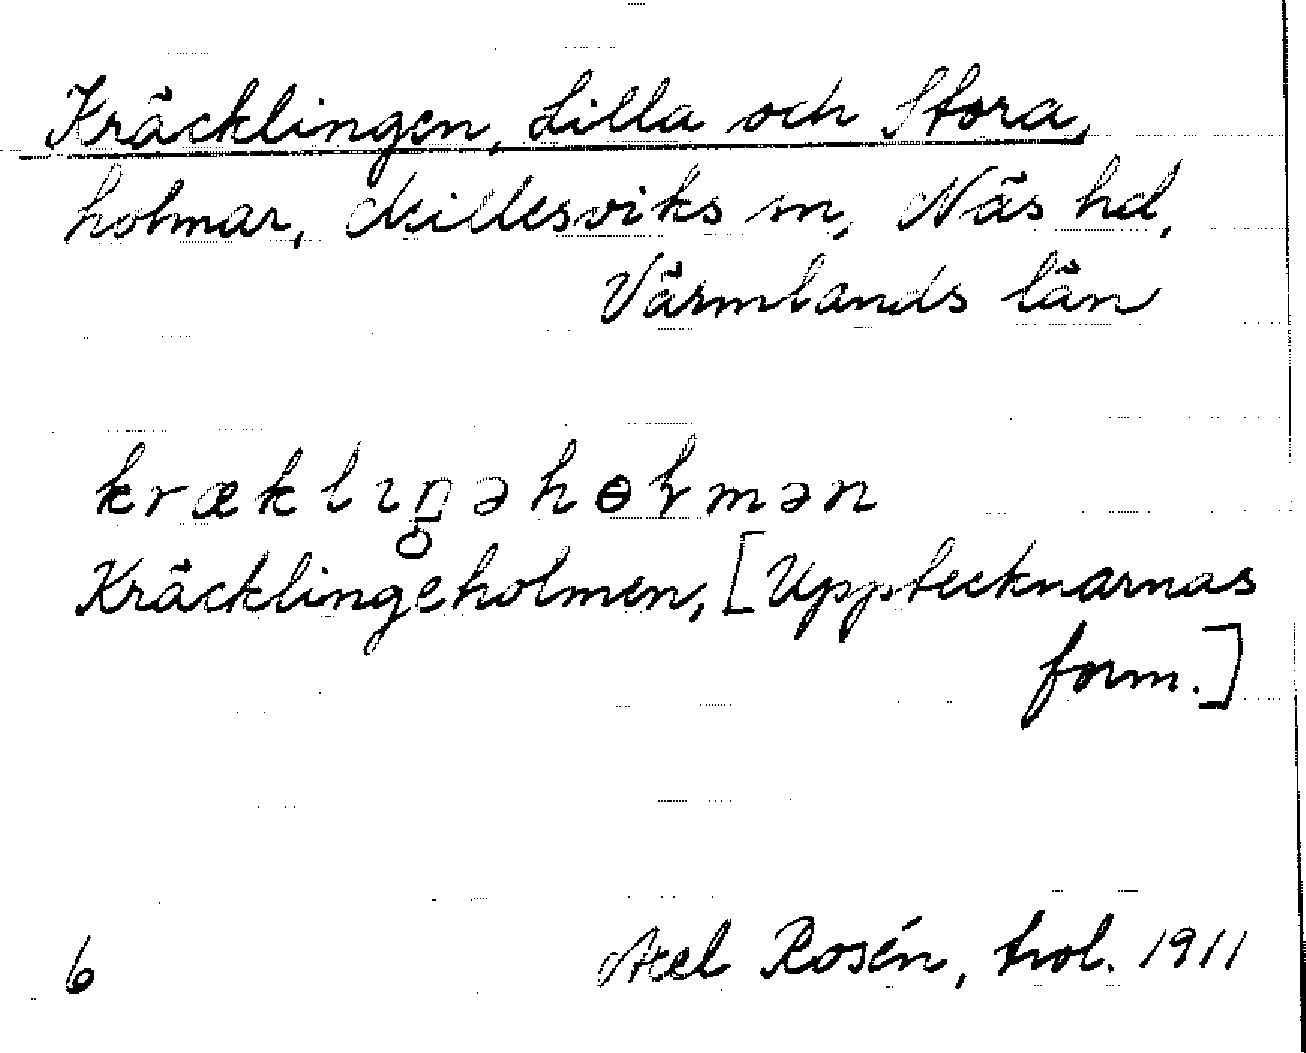 Kräcklingen, Lilla och Stora,
holmar, Millesviks sn, Näs hd,
Värmlands län
kræklıŋəhɵɽmən
Kräcklingeholmen, [Upptecknarnas
form.]
6 Axel Rosén, trol. 1911